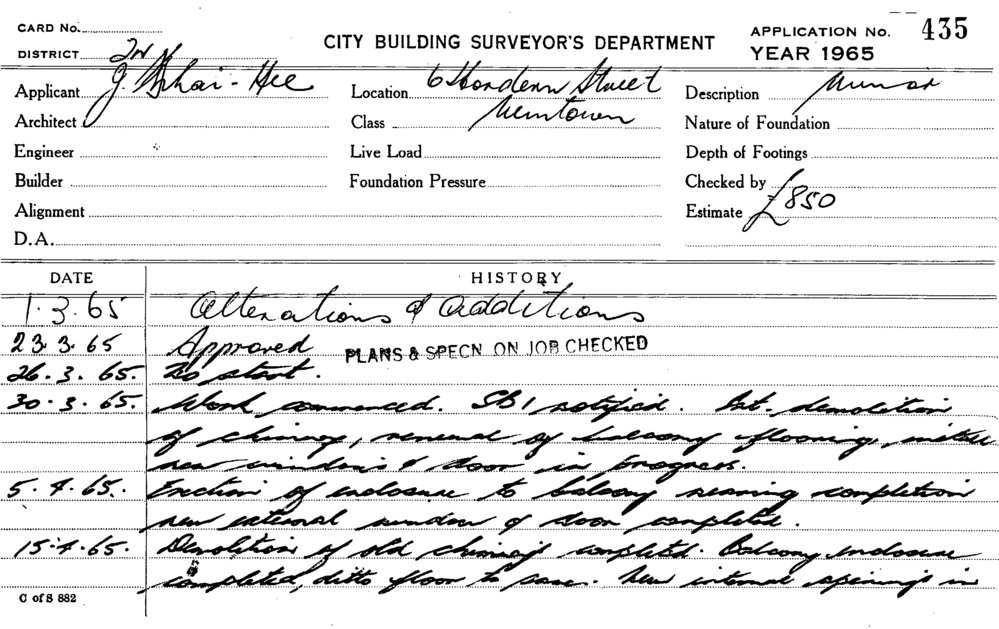 CARD No.
DISTRICT
CITY BUILDING SURVEYOR'S DEPARTMENT
APPLICATION No. 435
YEAR 1965
Applicant J.
Location 6 Hordern Street
Description Minor
Architect
Class Newtown
Nature of Foundation
Engineer
Live Load
Depth of Footings
Builder
Foundation Pressure
Checked by
Alignment
Estimate £850
D.A.
DATE HISTORY
1.3.65 Alterations & additions
23.3.65 Approved PLANS & SPECN ON JOB CHECKED
26.3.65. No start.
30.3.65. Work commenced. SB1 notified. demolition
of chimney, renewal of balcony flooring,
new windows & door in progress.
5.4.65. Erection of enclosure to balcony nearing completion
new external window & door completed.
15.4.65. Demolition of old chimneys completed. Balcony enclosure
completed, ditto floor to same. New internal openings in
C of S 882